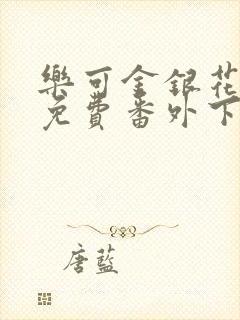 樂可金銀花
免費番外下
唐藍